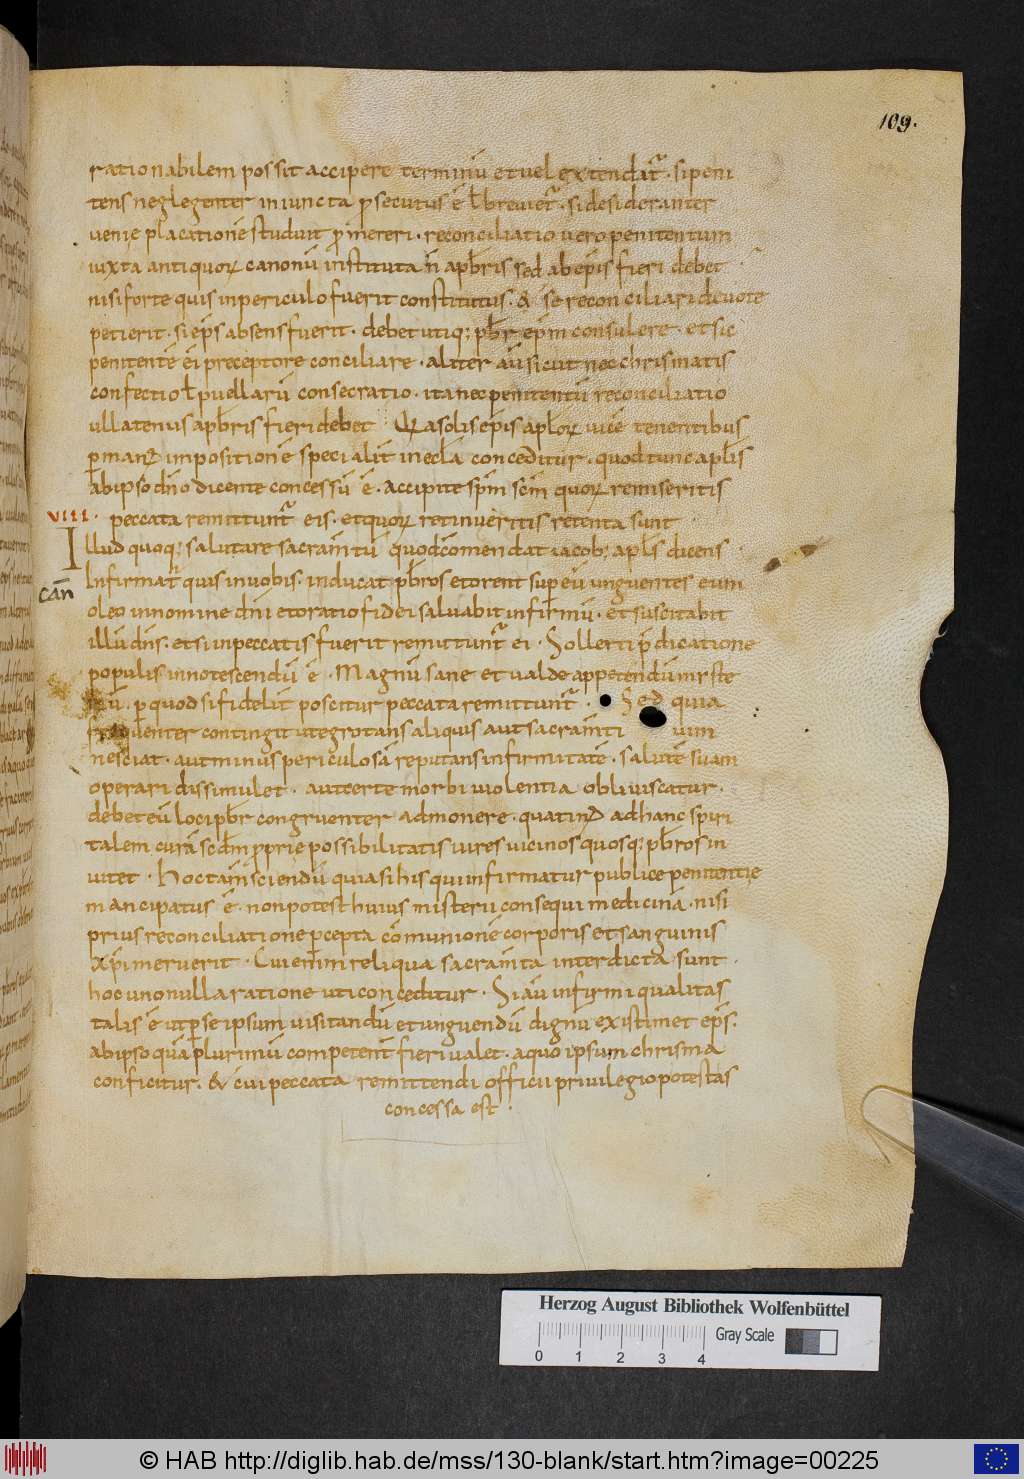 109.
rationabilem possit accipere terminū et uel extendat᷑ . si peni
tens neglegenter iniuncta p̄secutus ē l̄ breuiet᷑ . si desideranter
ueniȩ placationē studuit p̄mereri . reconciliatio uero penitentium
iuxta antiquoꝝ canonū instituta n̄ a pbr̄is sed ab ep̄is fieri debet
nisi forte quis in periculo fuerit constitutus . & se reconciliari deuote
petierit . si ep̄s absens fuerit . debet utiq; pbr̄ ep̄m consulere et sic
penitentē ei p̄cepto reconciliare . aliter aū sicut nec chrismatis
confectio l̄ puellarū consecratio . ita nec penitentū reconciliatio
ullatenus a pbr̄is fieri debet Quia solis ep̄is apl̄oꝝ uicē tenentibus
p̱ manꝰ impositionē specialit᷑ in ecl̄a conceditur . quod tunc apl̄is
ab ipso dn̄o dicente concessū ē . accipite sp̄m sc̄m quoꝝ remiseritis
VIII . peccata remittunt᷑ eis . et quoꝝ retinueritis retenta sunt
Illud quoq; salutare sacram̄tū quod cōmendat iacob; apl̄s dicens
cān Infirmat᷑ quis in uobis . inducat pbr̄os et orent sup̱ eū unguentes eum
oleo in nomine dn̄i et oratio fidei saluabit infirmū . et suscitabit
illū dn̄s . et si in peccatis fuerit remittunt᷑ ei . Sollerti p̄dicatione
populis innotescendū ē . Magnū sane et ualde appetendū miste
riū . p̱ quod si fidelit᷑ poscitur peccata remittunt᷑ . Sed quia
frequenter contingit ut egrotans aliquis aut sacram̄ti uim
nesciat . aut minus periculosā reputans infirmitatē . salutē suam
operari dissimulet . aut certe morbi uiolentia obliuiscatur .
debet eū loci pbr̄ congruenter admonere . quatinꝰ ad hanc spiri
talem curā scd̄m p̱prie possibilitatis uires uicinos quosq; pbr̄os in
uitet . Hoc tam̄ sciendū quia si his qui infirmatur publice penitentie
mancipatus ē . non potest huius misterii consequi medicinā . nisi
prius reconciliatione p̱cepta cōmunionē corporis et sanguinis
xp̄i meruerit . Cui enim reliqua sacram̄ta interdicta sunt .
hoc uno nulla ratione uti conceditur . Si aū infirmi qualitas
talis ē ut p̱ se ipsum uisitandū et unguendū dignū existimet ep̄s .
ab ipso quā plurimū competent᷑ fieri ualet . a quo ipsum chrisma
conficitur . & cui peccata remittendi officii priuilegio potestas
concessa est .
Herzog August Bibliothek Wolfenbüttel
Gray Scale
0 1 2 3 4
© HAB http://diglib.hab.de/mss/130-blank/start.htm?image=00225